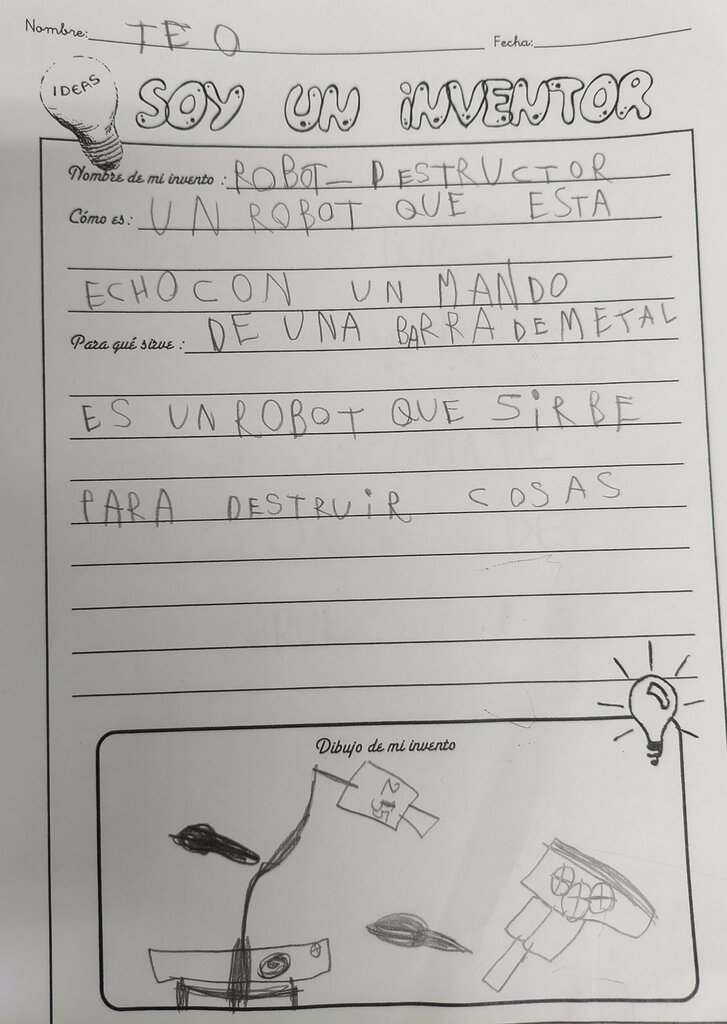 Nombre: TEO Fecha:
IDEAS
SOY UN INVENTOR
Nombre de mi invento : ROBOT_DESTRUCTOR
Cómo es: UN ROBOT QUE ESTA
ECHO CON UN MANDO
Para qué sirve : DE UNA BARRA DE METAL
ES UN ROBOT QUE SIRBE
PARA DESTRUIR COSAS
Dibujo de mi invento